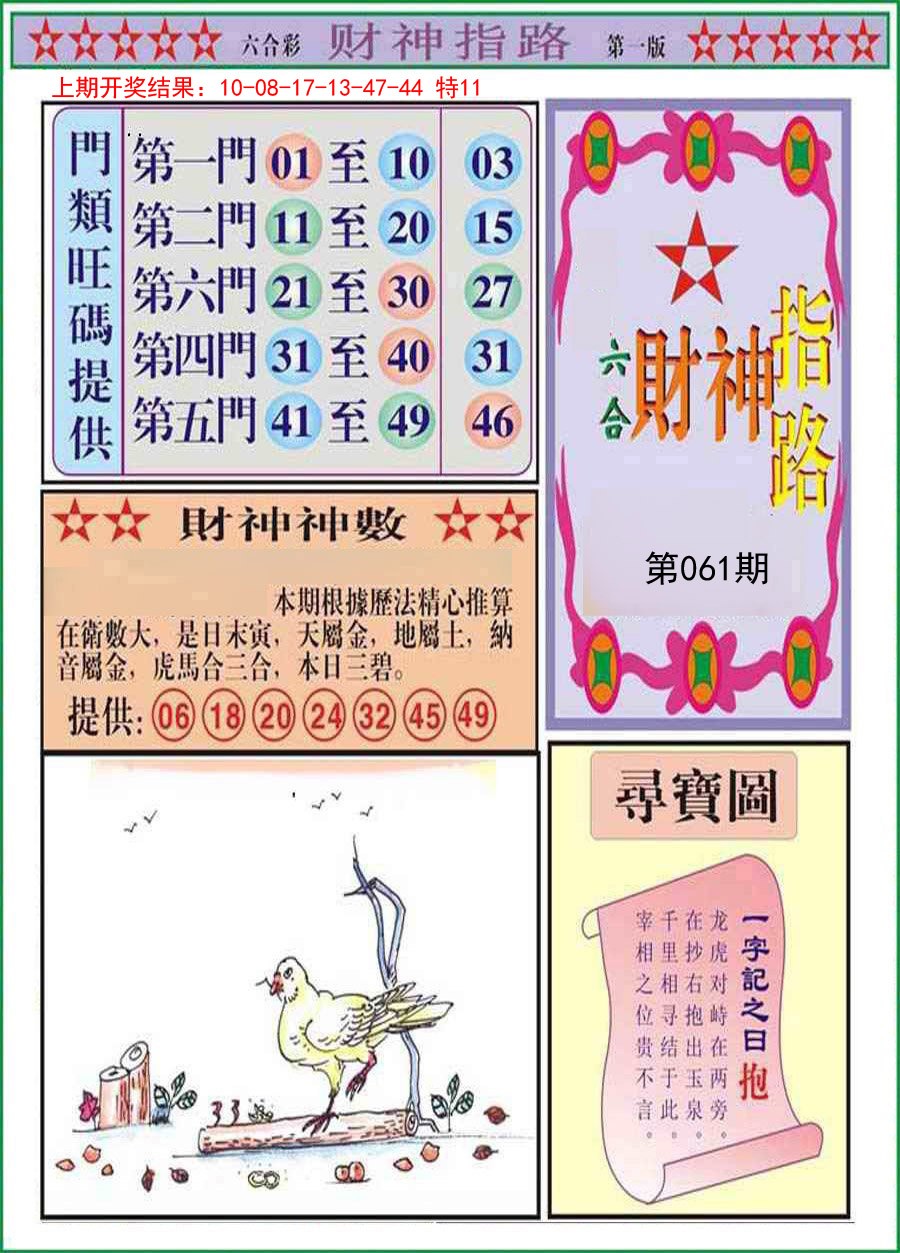 六合彩 财神指路 第一版
上期开奖结果：10-08-17-13-47-44 特11
門類旺碼提供
第一門 01 至 10 03
第二門 11 至 20 15
第六門 21 至 30 27
第四門 31 至 40 31
第五門 41 至 49 46
六合
財神
指路
第061期
財神神數
本期根據歷法精心推算
在衛數大，是日末寅，天屬金，地屬土，納
音屬金，虎馬合三合，本日三碧。
提供: 06 18 20 24 32 45 49
33
尋寶圖
一字記之日 抱
龙虎对峙在两旁。
在抄右抱出玉泉。
千里相寻结于此。
宰相之位贵不言。